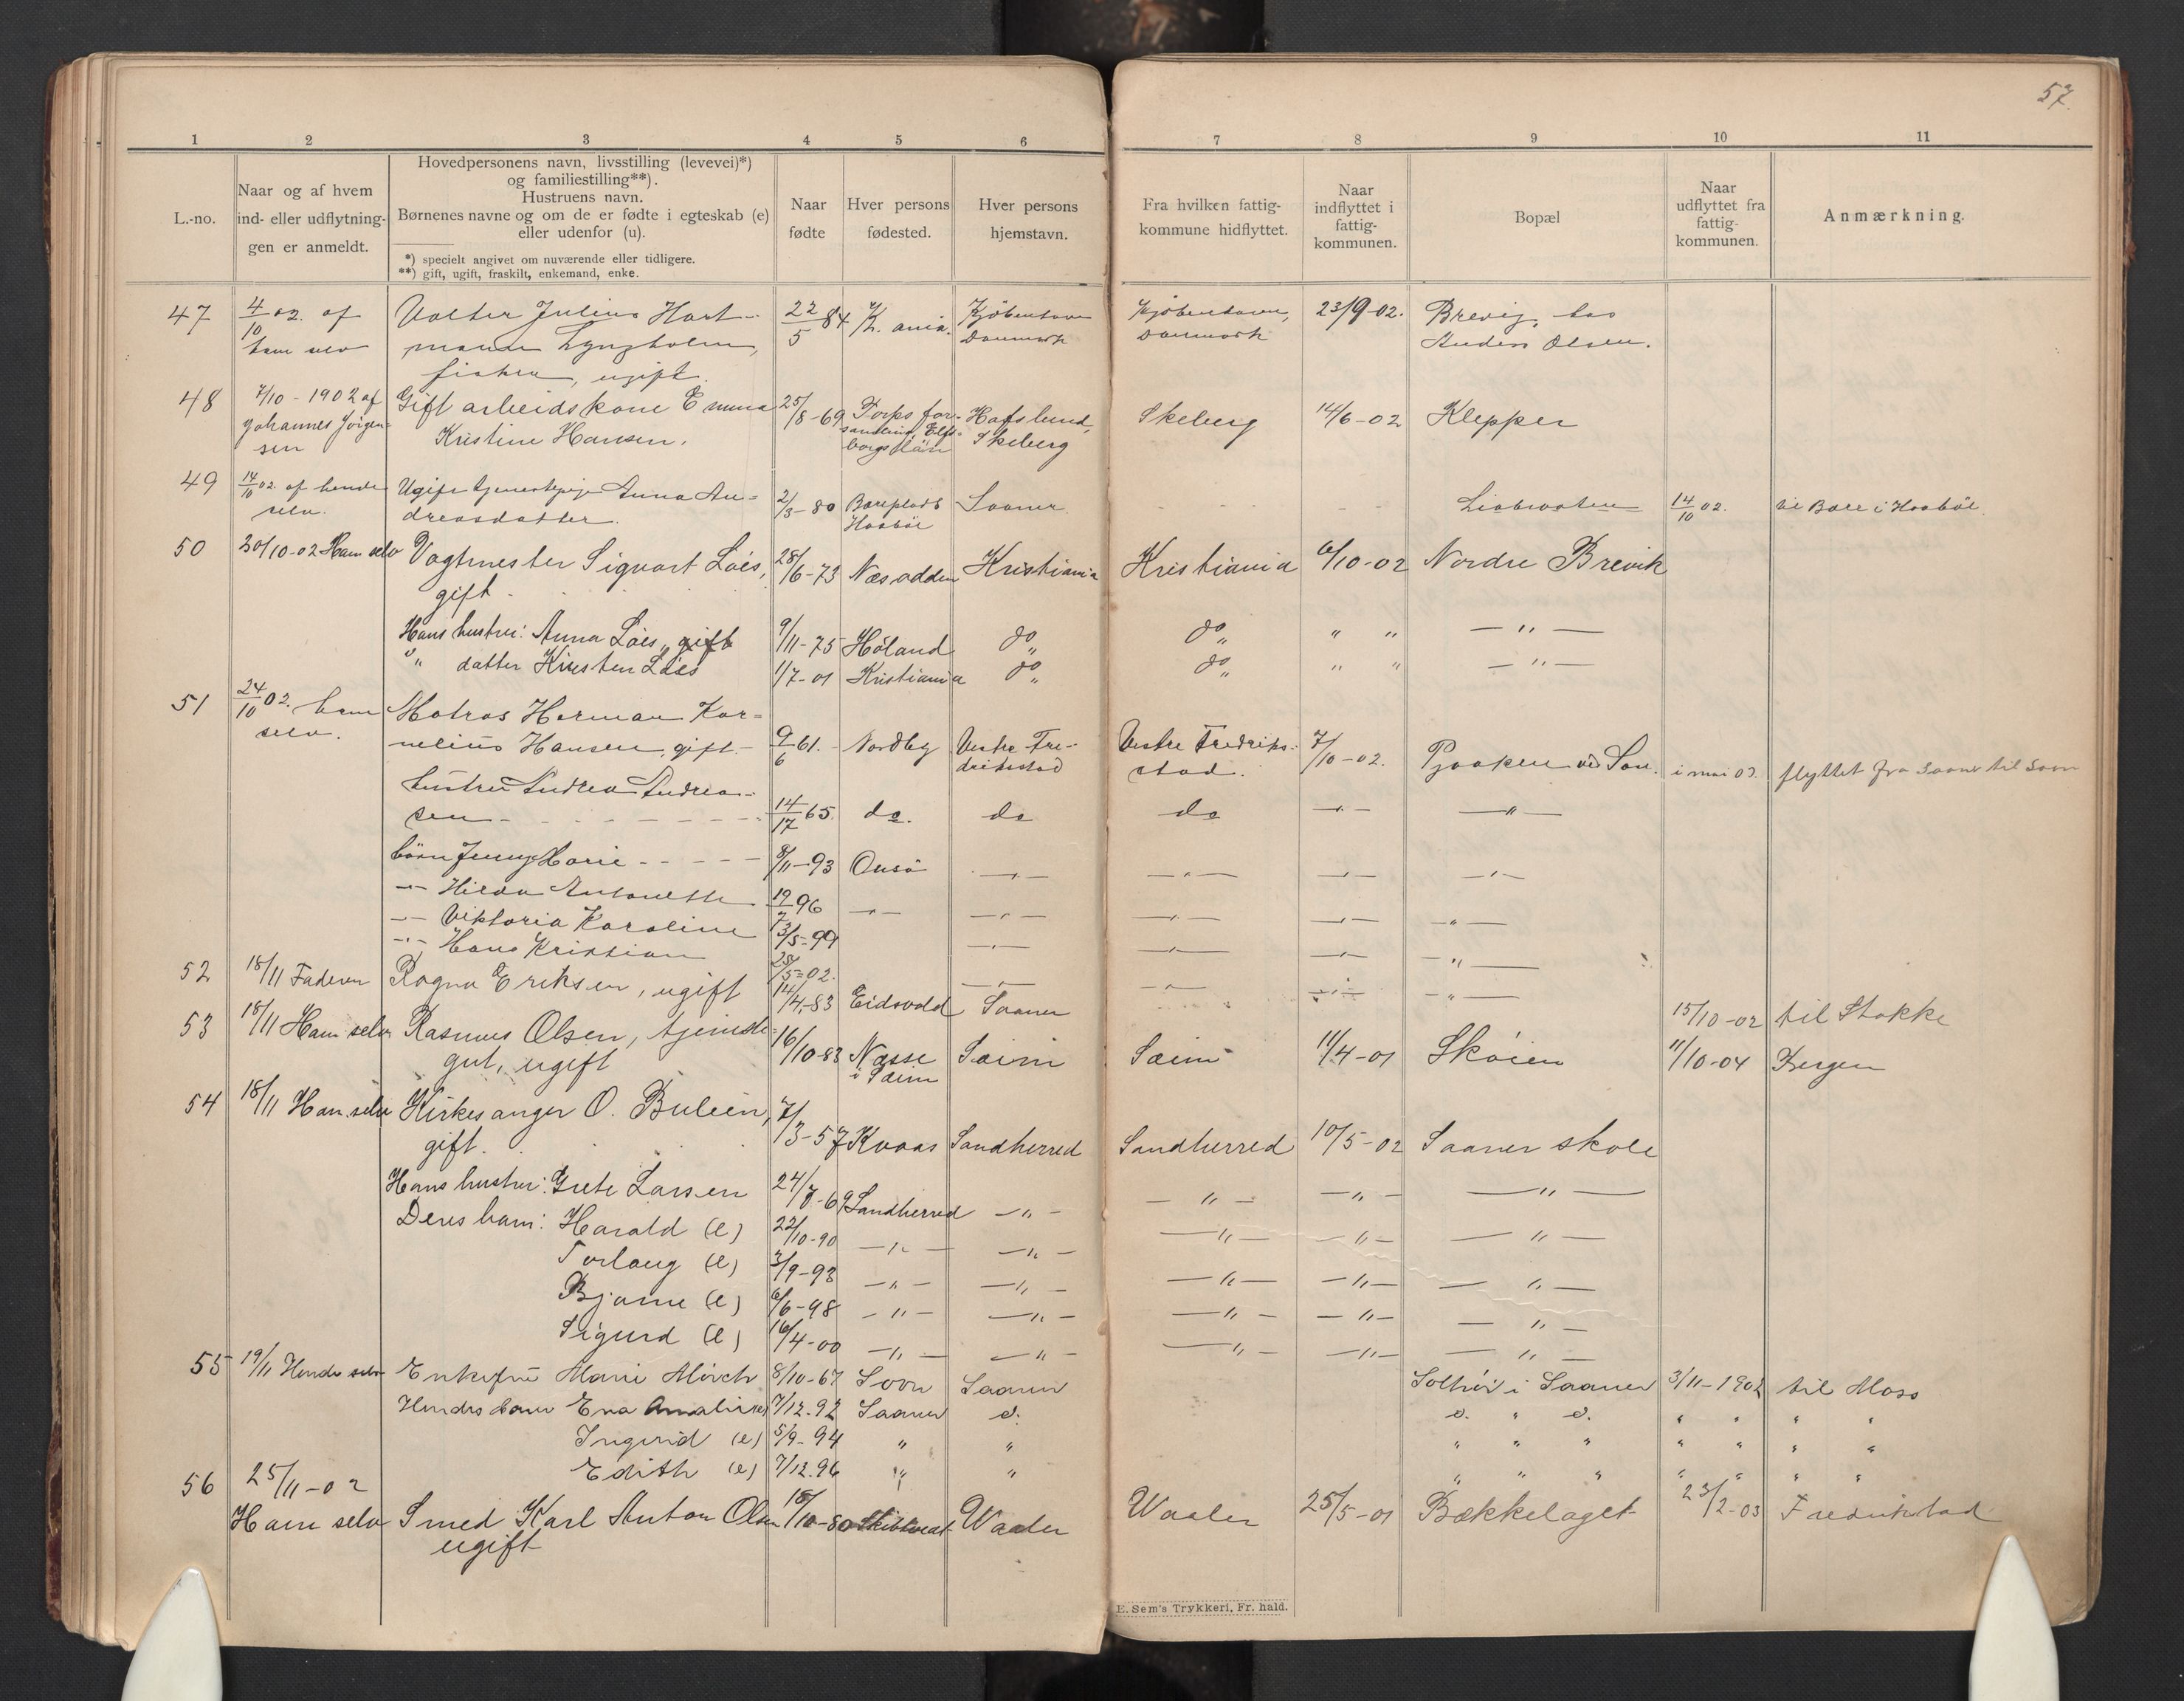 57.
1 2 3 4 5 6 7 8 9 10 11
L.-no.
Naar og af hvem
ind- eller udflytnin-
gen er anmeldt.
Hovedpersonens navn, livsstilling (levevei)*)
og familiestilling**).
Hustruens navn.
Børnenes navne og om de er fødte i egteskab (e)
eller udenfor (u).
*) specielt angivet om nuværende eller tidligere.
**) gift, ugift, fraskilt, enkemand, enke.
Naar
fødte
Hver persons
fødested.
Hver persons
hjemstavn.
Fra hvilken fattig-
kommune hidflyttet.
Naar
indflyttet i
fattig-
kommunen.
Bopæl
Naar
udflyttet fra
fattig-
kommunen.
Anmærkning.
47 4/10 02. af Valter Julius Hart- 22/5 84 K.ania. Kjøbenhavn Kjøbenhavn, 23/9-02. Brevig, hos
ham selv mann Lyngholm, Danmark Danmark Anders Olsen.
fisker, ugift.
48 7/10-1902 af Gift arbeidskone Emma 25/8-69 Torps for- Hafslund, Skeberg 14/6-02 Klepper
Johannes Jörgen- Kristine Hansen. samling, Elfs- Skeberg
sen borgs län
49 14/10 02. af hende Ugift tjenestepige Anna An- 2/3-80 Soaner - - - - 14/10 02. til Bare i Haabøl.
selv. dreasdatter. Haabøl
50 30/10-02 Ham selv Vagtmester Sigvart Löes, 28/6-73 Næsodden Kristiania Kristiania 6/10-02 Nordre Brevik
gift.
Hans hustru: Anna Löes, gift 9/11-75 Höland do do " " — " —
" datter Kirsten Löes 1/7-01 Kristiania do do " " — " —
51 24/10 02. ham Matros Herman Kor-
selv. nelius Hansen, gift - 9/6 61. Nordby Vestre Fre- Vestre Fredriks- 7/10-02. Pjaaken ved Son. i mai 03. flyttet fra Saaner til Soon
drikstad stad.
hustru Andrea Andrea-
sen - - - 14/17 65. do. do do — " — — " —
börn Jenny Marie - - - 8/11-93 Onsö — " — — " — — " — — " —
— " — Hilda Antonette 19/7 96 — " — — " — — " — — " — — " —
— " — Viktoria Karoline 13/5-99 — " — — " — — " — — " —
— " — Hans Kristian 28/5-02. — " — — " — — " — — " —
52 18/11 Faderen Ragna Eriksen, ugift 14/4-83 Eidsvold Saaner 15/10-02 til Stokke
53 18/11 Ham selv Rasmus Olsen, tjeneste- 16/10-83 Næsse Sæim Sæim 11/4-01 Skøien 11/10-04 Bergen
gut, ugift i Sæim
54 18/11 Ham selv Kirkesanger O. Buleien, 7/3-57 Kvaas Sandherred Sandherred 10/5-02 Saaner skole
gift.
Hans hustru: Grete Larsen 24/7-69 Sandherred — " — — " — — " — — " —
Deres barn: Harald (e) 22/10-90 — " — — " — — " — — " — — " —
Torlaug (e) 3/9-93 — " — — " — — " — — " — — " —
Bjarne (e) 6/6-98 — " — — " — — " — — " — — " —
Sigurd (e) 16/4-00 — " — — " — — " — — " — — " —
55 19/11 Hende selv Enkefru Marie Mörch 8/10-67 Soon Saaner Solhöi i Saaner 3/11-1902 til Moss
Hendes barn Ena Amalie (e) 7/12.92 Saaner d. d. " d. " " " "
Ingerid (e) 5/9-94 " " " " " " " " "
Edith (e) 7/12.96 " " " " " " " " "
56 25/11-02
Ham selv Smed Karl Anton Olsen 18/10-80 Skibtvedt Waaler Waaler 25/5-01 Bækkelaget 23/2-03 Fredrikstad
ugift
E. Sem's Trykkeri, Fr.hald.